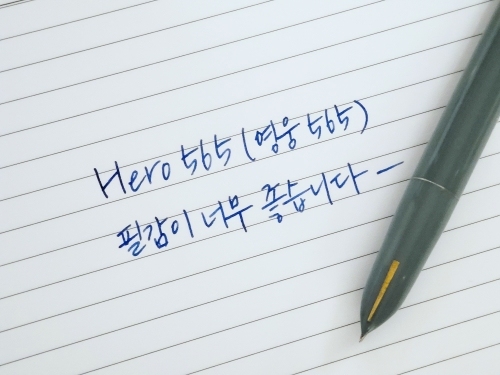 Hero 565 (영웅 565)
필감이 너무 좋습니다 ー